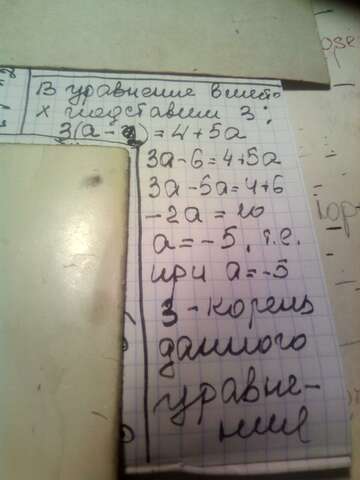 В уравнение вместо
х подставим 3:
3(а-2)=4+5а
3а-6=4+5а
3а-5а=4+6
-2а=10
а=-5, т.е.
при а=-5
3-корень
данного
уравне-
ния